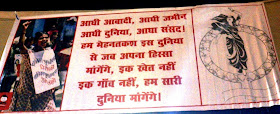 आधी आबादी, आधी जमीन
आधी दुनिया, आधा संसद।
हम मेहनतकश इस दुनिया
से जब अपना हिस्सा
मांगेंगे, इक खेत नहीं
इक गाँव नहीं, हम सारी
दुनिया मांगेंगे।